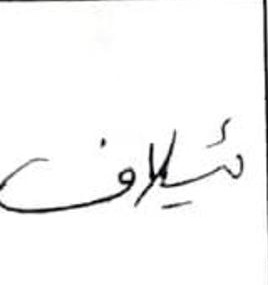 ئيلاف